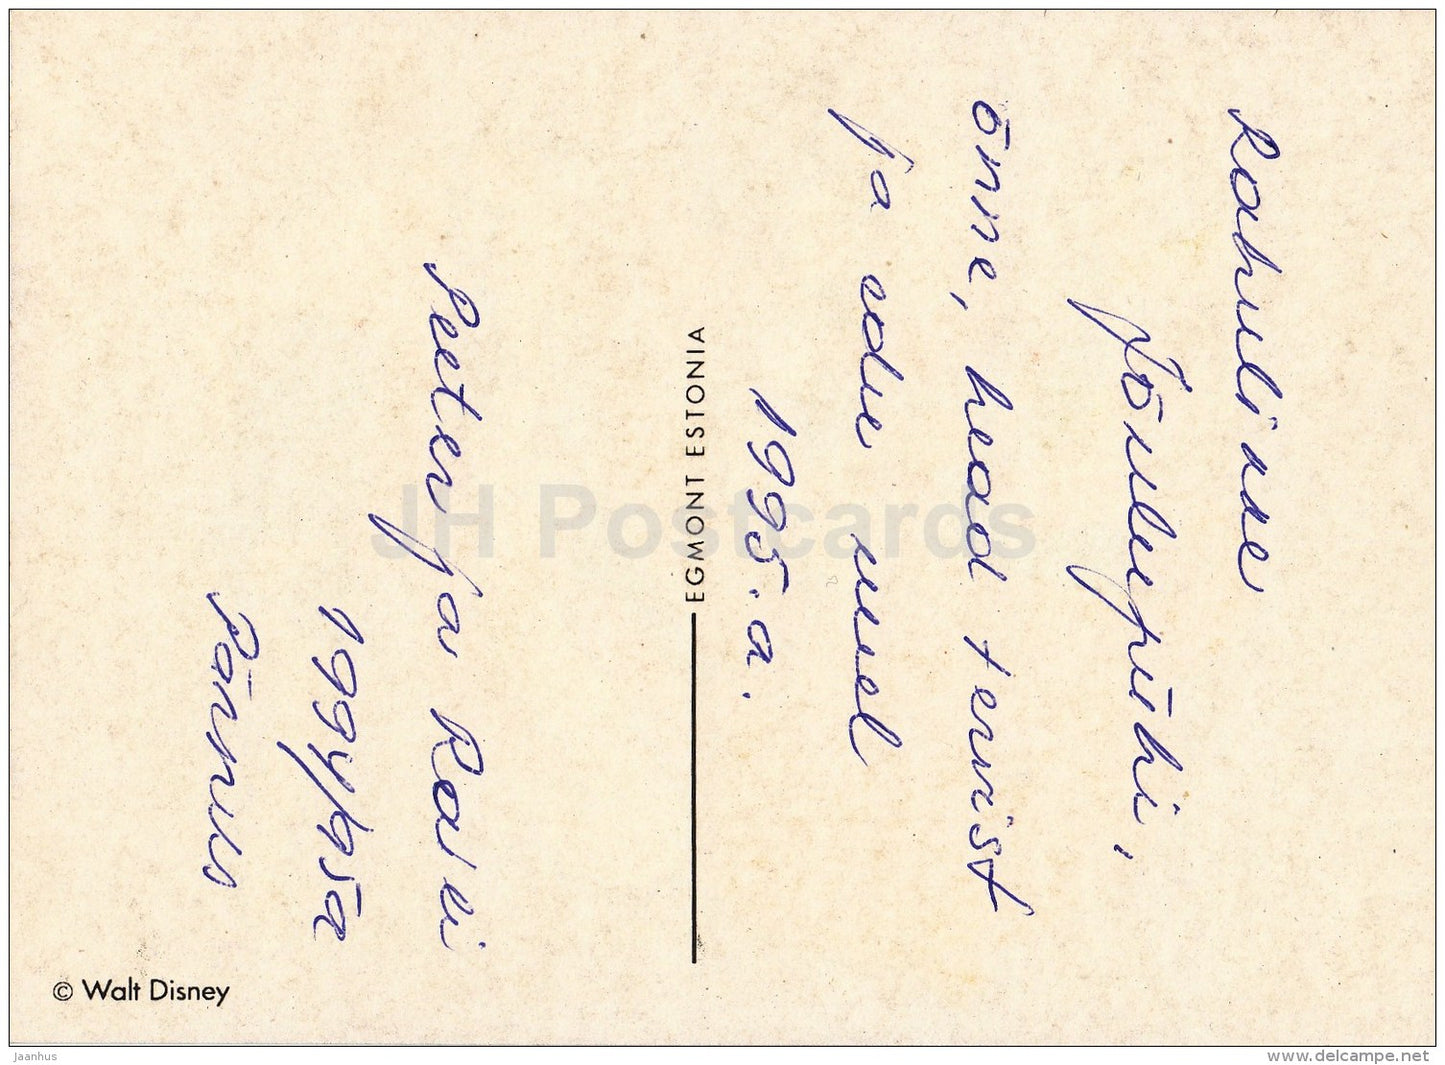 Rahuline
Jõulupühi,
õnne, head tervist
ja edu uuel
1995. a.
Peeter ja
1994/95a
Pärnus
EGMONT ESTONIA
© Walt Disney
JH Postcards
jaanhus
www.delcampe.net